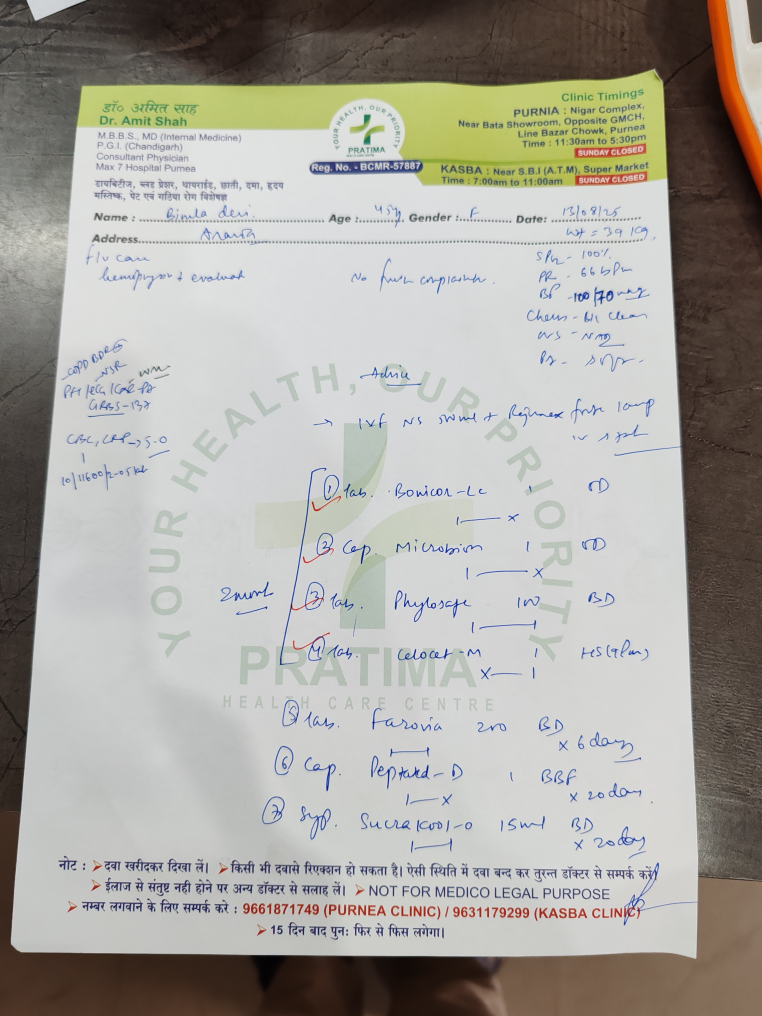 डॉ० अमित साह
Dr. Amit Shah
M.B.B.S., MD (Internal Medicine)
P.G.I. (Chandigarh)
Consultant Physician
Max 7 Hospital Purnea
डायबिटीज, ब्लड प्रेशर, थायराईड, छाती, दमा, हृदय
मस्तिष्क, पेट एवं गठिया रोग विशेषज्ञ
YOUR HEALTH, OUR PRIORITY
PRATIMA
HEALTH CARE CENTRE
Reg. No. - BCMR-57887
Clinic Timings
PURNIA : Nigar Complex,
Near Bata Showroom, Opposite GMCH,
Line Bazar Chowk, Purnea
Time : 11:30am to 5:30pm
SUNDAY CLOSED
KASBA : Near S.B.I (A.T.M), Super Market
Time : 7:00am to 11:00am SUNDAY CLOSED
Name : Bimla devi. Age : 45y Gender : F Date: 13/08/25
Address Araria wt = 39 kg.
f/u case
hemoptysis evaluated No fresh complaints.
SPO2 - 100%
PR - 66 bpm
BP - 100/70 mmHg
Chest - B/L clear
CVS - NAD
P/A - soft
GRBS - 132
CBC, CRP → 5.0
10/11600/2.05 lakh
Advice
→ IVF NS 500ml +
2 month
① Tab. Bonicor-Lc 1 OD
1 — x
② Cap. Microbion 1 OD
1 — x
③ Tab. Phylosafe 100 BD
1 — 1
④ Tab. Celocet-M 1 HS (9pm)
x — 1
⑤ Tab. Farovia 200 BD
1 — 1 x 6 days
⑥ Cap. Peptard-D 1 BBF
1 — x x 20 days
⑦ Syp. Sucrakool-O 15ml BD
1 — 1 x 20 days
YOUR HEALTH, OUR PRIORITY
PRATIMA
HEALTH CARE CENTRE
नोट : ➤ दवा खरीदकर दिखा लें। ➤ किसी भी दवासे रिएक्शन हो सकता है। ऐसी स्थिति में दवा बन्द कर तुरन्त डॉक्टर से सम्पर्क करें
➤ ईलाज से संतुष्ट नही होने पर अन्य डॉक्टर से सलाह लें। ➤ NOT FOR MEDICO LEGAL PURPOSE
➤ नम्बर लगवाने के लिए सम्पर्क करे : 9661871749 (PURNEA CLINIC) / 9631179299 (KASBA CLINIC)
➤ 15 दिन बाद पुनः फिर से फिस लगेगा।